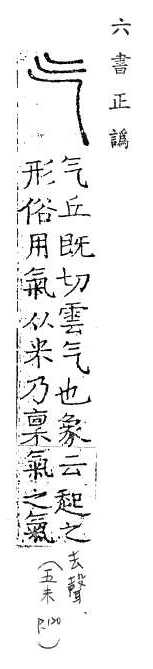 六書正譌
气
气丘既切雲气也象云起之
形俗用氣从米乃稟氣之氣
去聲
(五未
P.120)